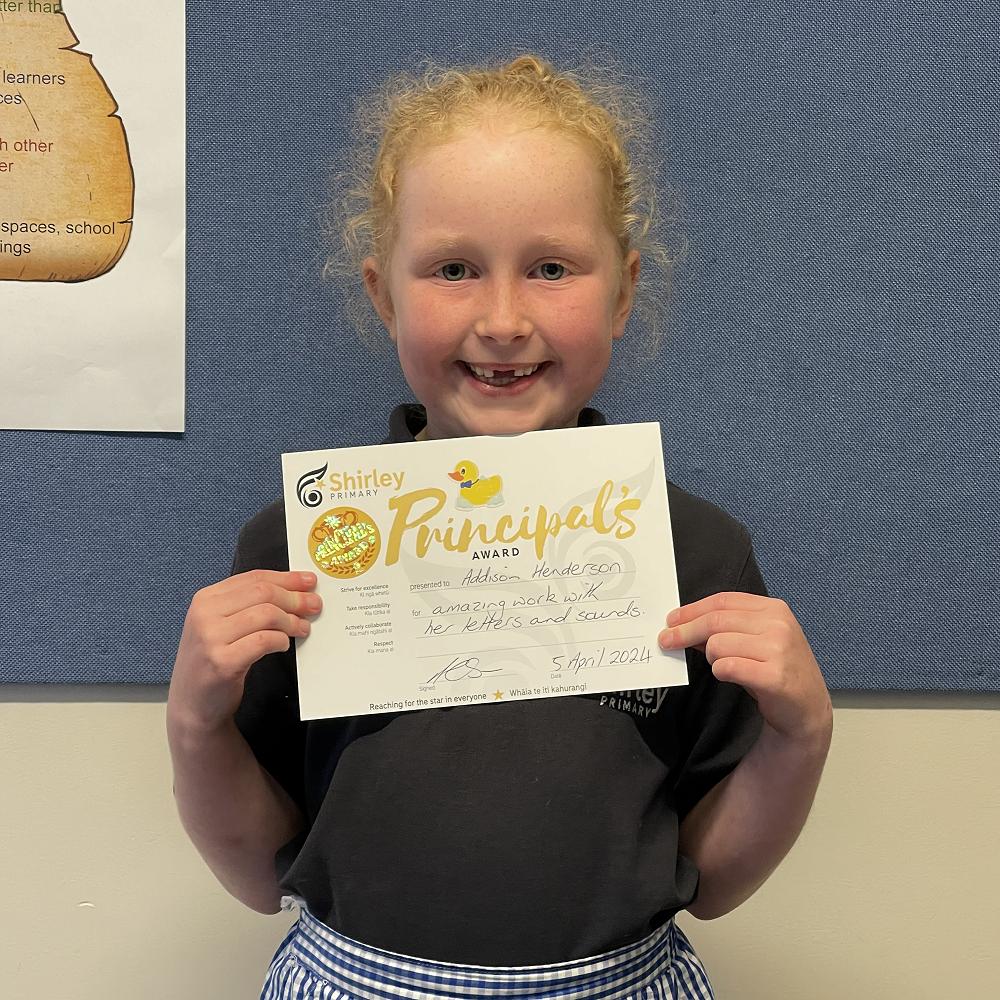 tter than
learners
ces
h other
er
spaces, school
ings
Shirley
PRIMARY
Principal's
AWARD
PRINCIPAL'S
AWARD
Strive for excellence
Kī ngā whetū
Take responsibility
Actively collaborate
Respect
Kia mana
presented to Addison Henderson
for amazing work with
her letters and sounds.
5 April 2024
Signed Date
Reaching for the star in everyone ★ Whāia te iti kahurangi
PRIMARY